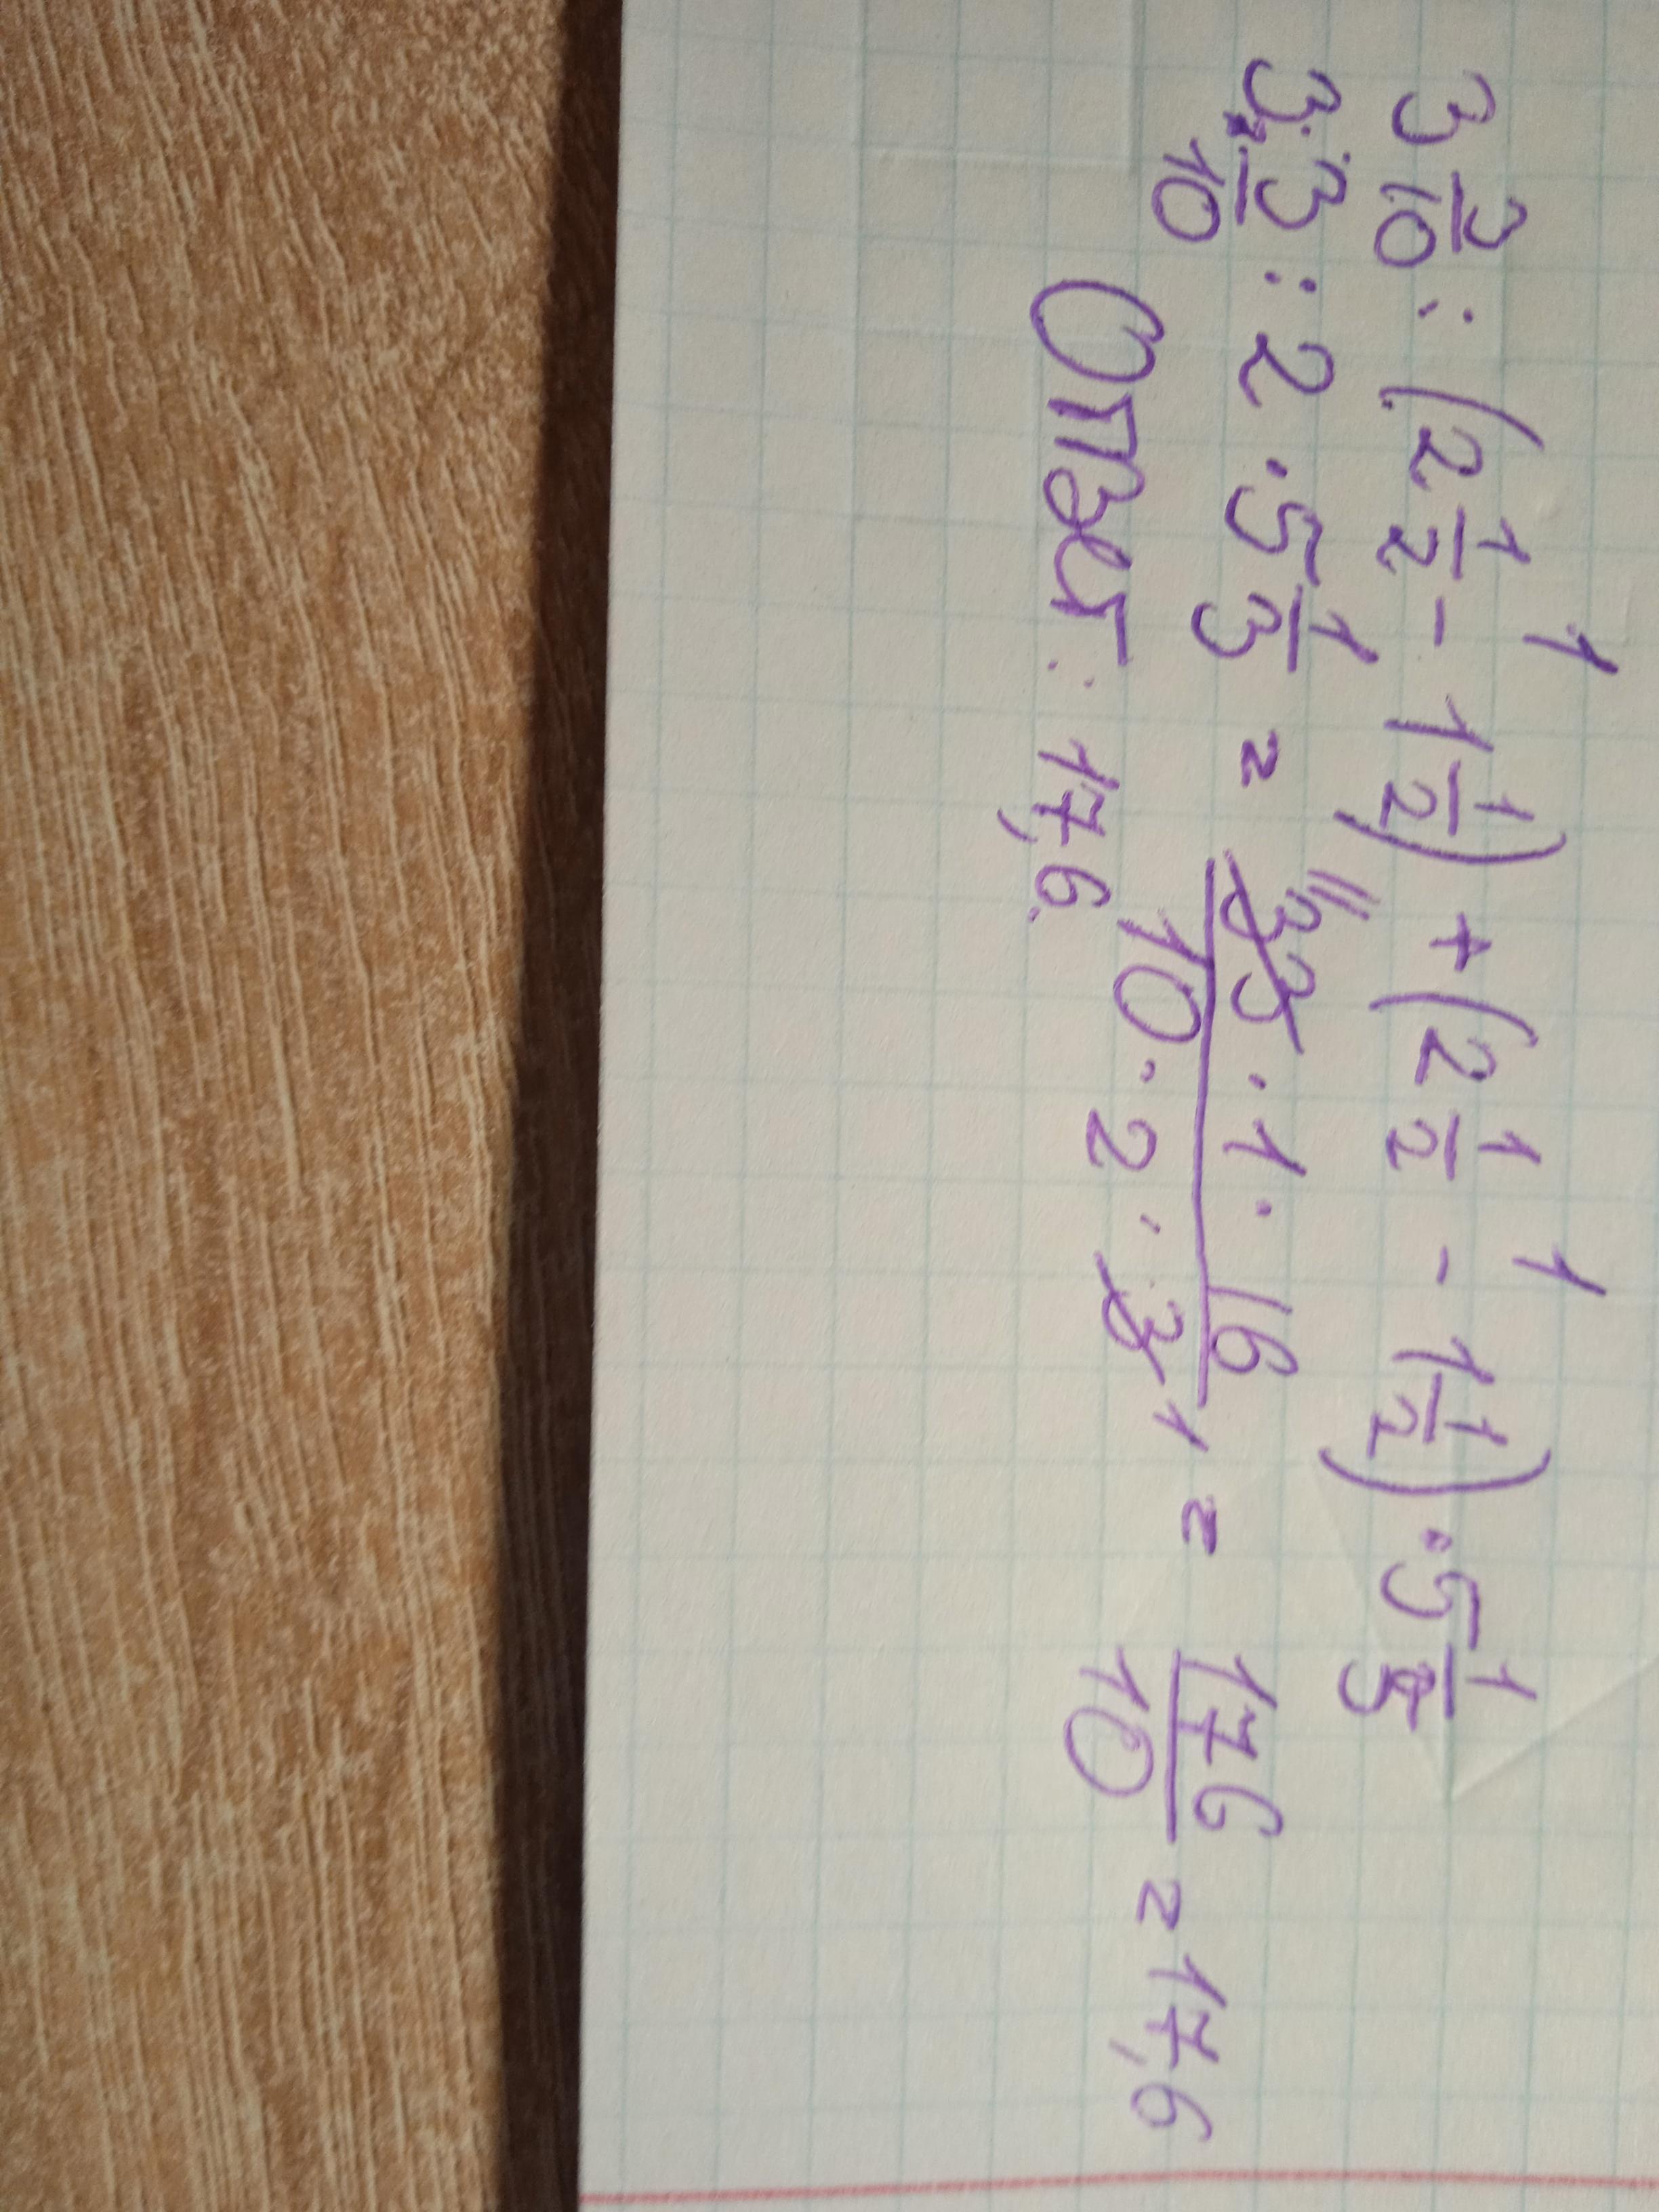 1 1
3 3/10 : (2 1/2 - 1 1/2) + (2 1/2 - 1 1/2) · 5 1/3
3 3/10 : 2 · 5 1/3 = 11 33 · 1 · 16 / 10 · 2 · 3 1 = 176/10 = 17,6
Ответ: 17,6.